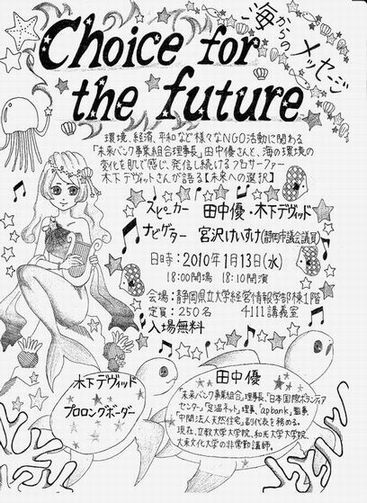 Choice for the future
海からのメッセージ
環境、経済、平和など様々なNGO活動に関わる
「未来バンク事業組合理事長」田中優さんと、海の環境の
変化を肌で感じ、発信し続けるプロサーファー
木下デヴィッドさんが語る【未来への選択】
スピーカー 田中優・木下デヴィッド
ナビゲター 宮沢けいすけ(静岡市議会議員)
日時:2010年1月13日(水)
18:00開場 18:10開演
会場:静岡県立大学経営情報学部棟1階
定員:250名 4111講義室
入場無料
木下デヴィッド
プロロングボーダー
田中優
「未来バンク事業組合」理事長、「日本国際ボランティア
センター」「足温ネット」理事、「apbank」監事
「中間法人天然住宅」副代表を務める。
現在、立教大学大学院、和光大学大学院、
大東文化大学の非常勤講師。